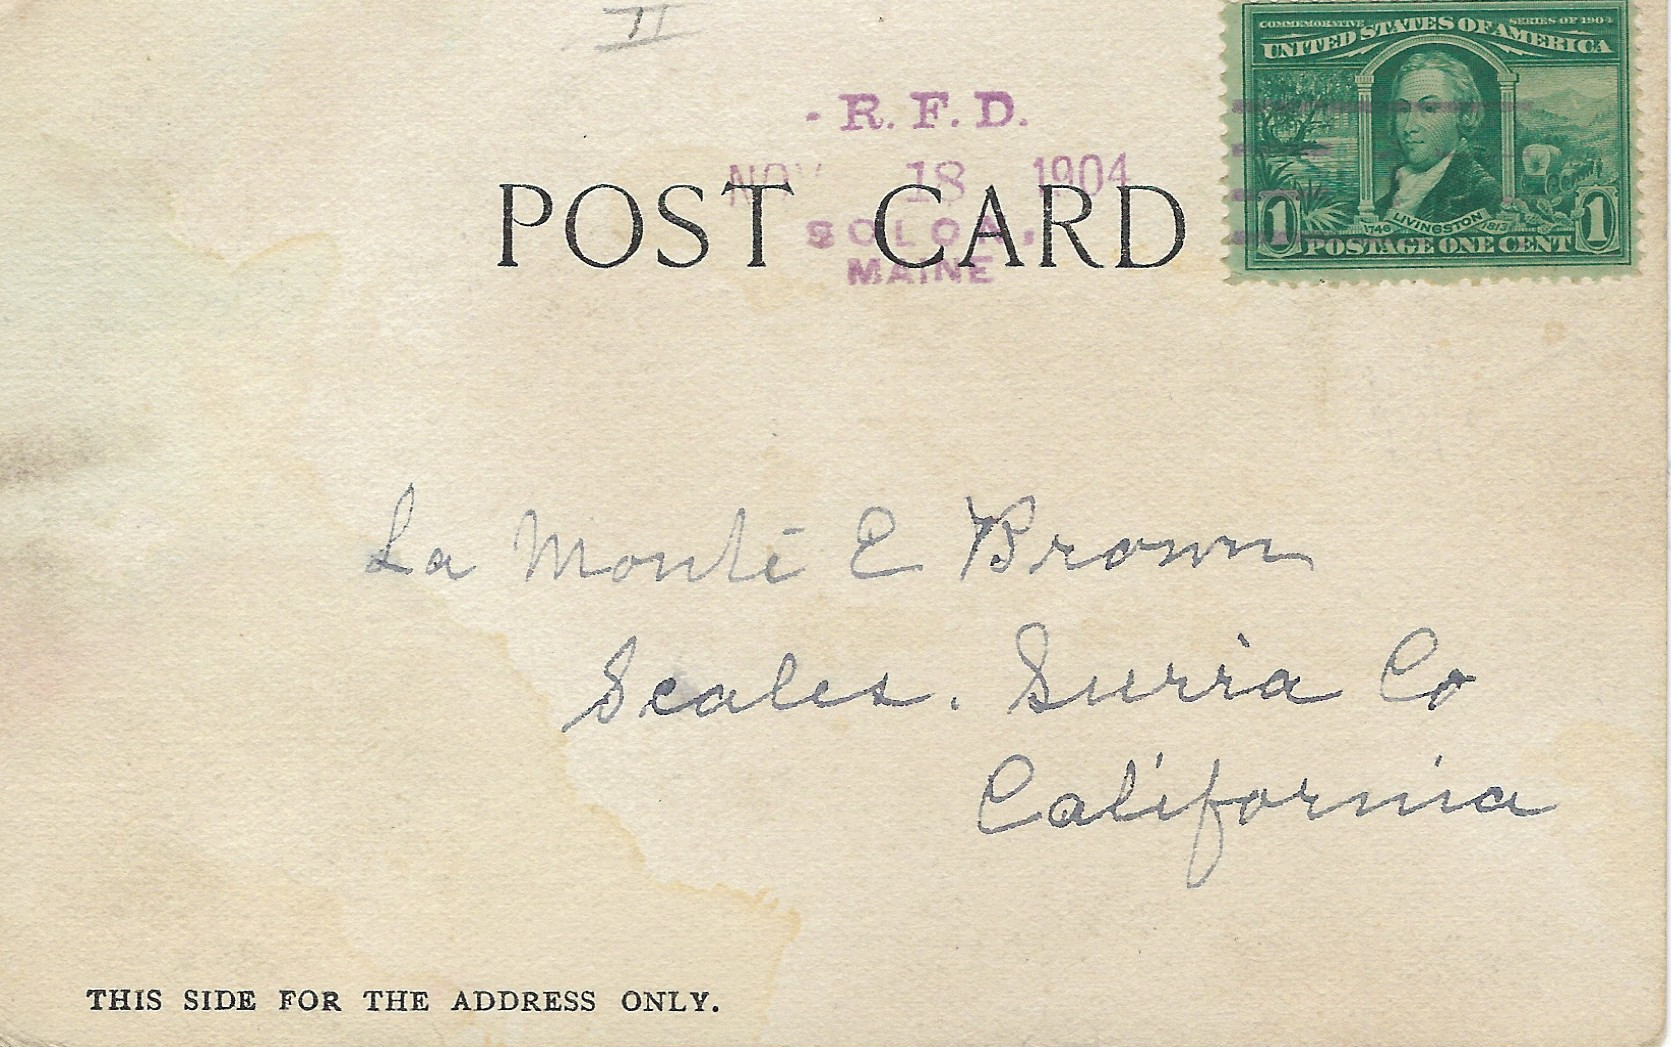 II
COMMEMORATIVE SERIES OF 1904
UNITED STATES OF AMERICA
LIVINGSTON
1746 1813
1 POSTAGE ONE CENT 1
- R. F. D.
NOV 18 1904
SOLON,
MAINE
POST CARD
La Monte E Brown
Scales. Surria Co
California
THIS SIDE FOR THE ADDRESS ONLY.